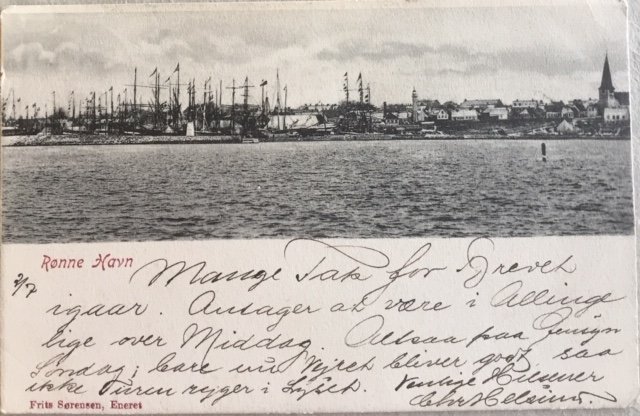 Rønne Havn
2/7 Mange Tak for Brevet
igaar. Antager at være i Allinge
lige over Middag. Altsaa paa Gensyn
Søndag; bare nu Vejret bliver godt, saa
ikke Turen ryger i Lyset. Venlige Hilsener
Chr
Frits Sørensen, Eneret